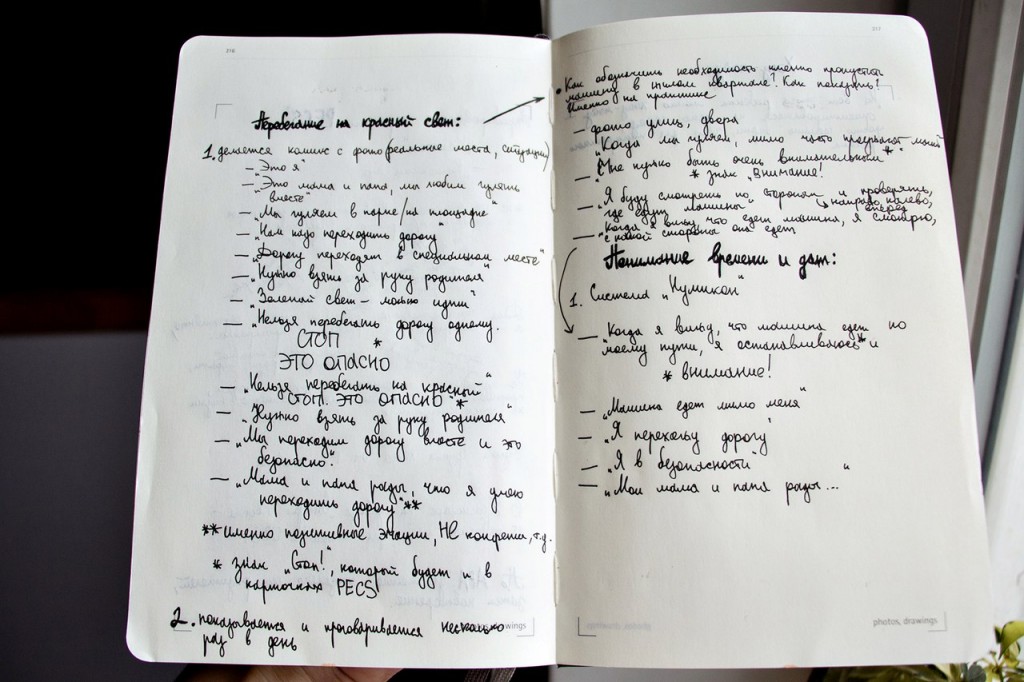 216
Перебегание на красный свет:
1. делается комикс с фото (реальные места, ситуации)
– „Это я“
– „Это мама и папа, мы любим гулять
вместе“
– „Мы гуляем в парке/на площадке“
– „Нам надо переходить дорогу“
– „Дорогу переходят в специальном месте“
– „Нужно взять за руку родителя“
– „Зеленый свет – можно идти“
– „Нельзя перебегать дорогу одному.
СТОП *
ЭТО ОПАСНО
– „Нельзя перебегать на красный“
СТОП. ЭТО ОПАСНО *
– „Нужно взять за руку родителя“
– „Мы переходим дорогу вместе и это
безопасно“.
– „Мама и папа рады, что я умею
переходить дорогу“**
** именно позитивные эмоции, НЕ конфета, т.д.
* знак „Стоп!“, который будет и в
карточках PECS
2. показывается и проговаривается несколько
раз в день
217
• Как обозначить необходимость именно пропустить
машину в жилом квартале? Как показать?
Именно на практике
– фото улиц, двора
– „Когда мы гуляем, мимо часто проезжают
– „Мне нужно быть очень внимательным“ *
* знак „Внимание!
– „Я буду смотреть по сторонам и проверять,
где едут машины“ направо, налево,
вперед
– „Когда я вижу, что едет машина, я смотрю,
с какой стороны она едет
Понимание времени и дат:
1. Система „Нумикон“
– „Когда я вижу, что машина едет по
моему пути, я останавливаюсь* и
* ВНИМАНИЕ!
– „Машина едет мимо меня“
– „Я перехожу дорогу“
– „Я в безопасности“
– „Мои мама и папа рады...“
photos, drawings